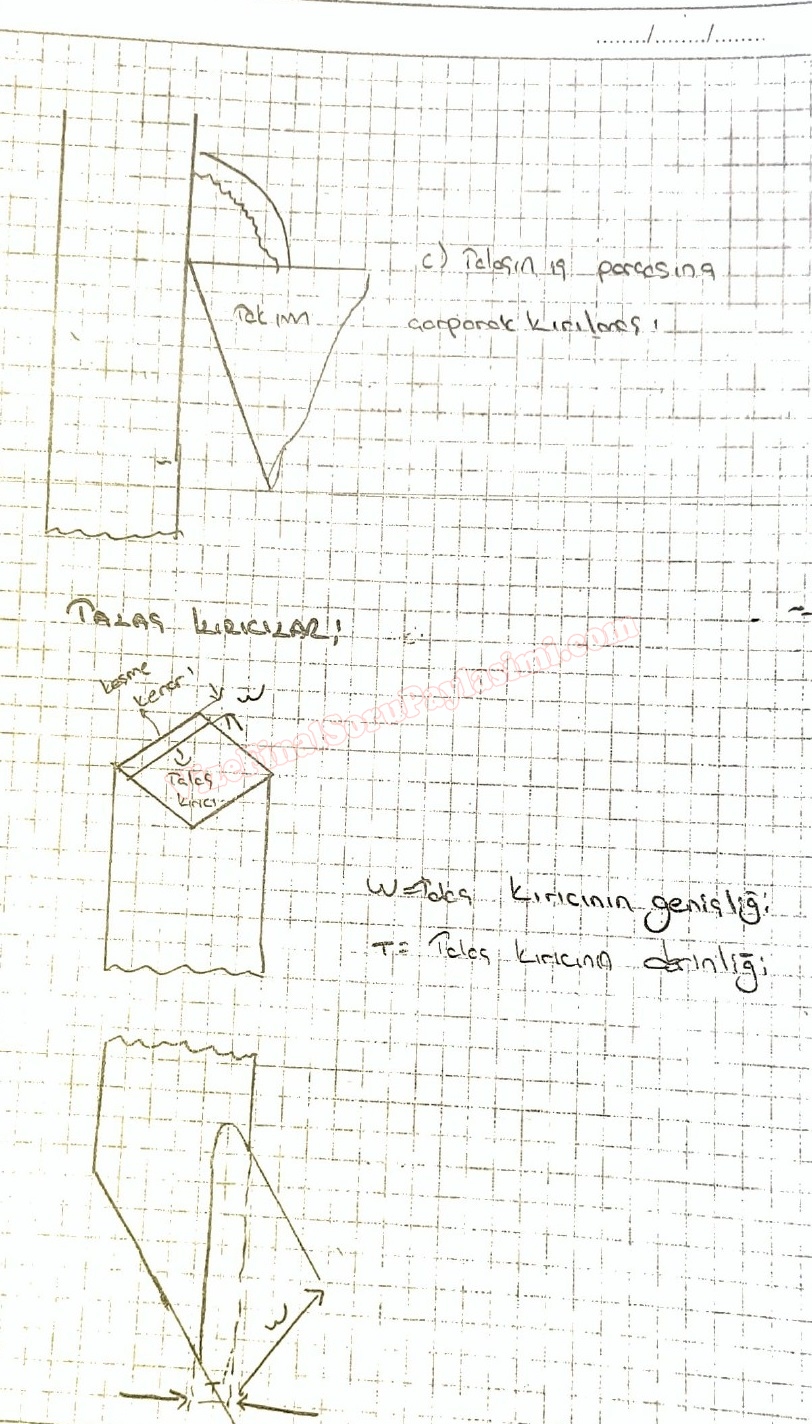 ......../......../........
c) Talaşın iş parçasına
Takım
çarparak kırılması
TALAŞ KIRICILAR;
kesme
kenarı
W
Talaş
kırıcı
W=Talaş kırıcının genişliği
T= Talaş kırıcının derinliği
W
T
VizeFinalSoruPaylasimi.com